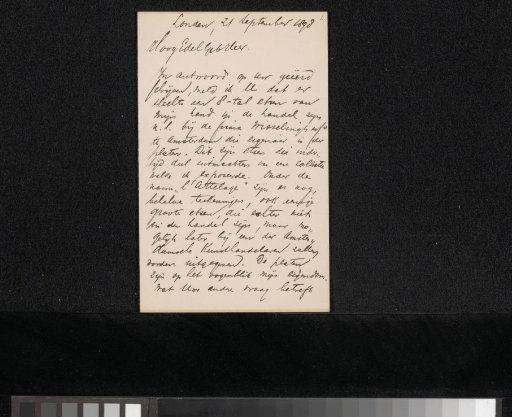 Londen, 21 September 1898
HoogEdelGeb Heer.
In antwoord op uw geëerd
schrijven, meld ik U dat er
slechts een 8-tal etsen van
mijn hand in de handel zijn
n.l. bij de firma Wisselingh & Co
te Amsterdam die eigenaar is der
platen. Dit zijn etsen die
deel uitmaakten van een collectie
welke ik exposeerde. Onder de
naam "l'Attelage" zijn er nog,
behalve teekeningen, ook eenige
groote etsen, die echter niet
in den handel zijn, maar mo-
gelijk later bij een der Amster-
damsche Kunsthandelaren zullen
worden uitgegeven. De platen
zijn op het oogenblik mijn eigendom.
Wat Uw andre vraag betreft